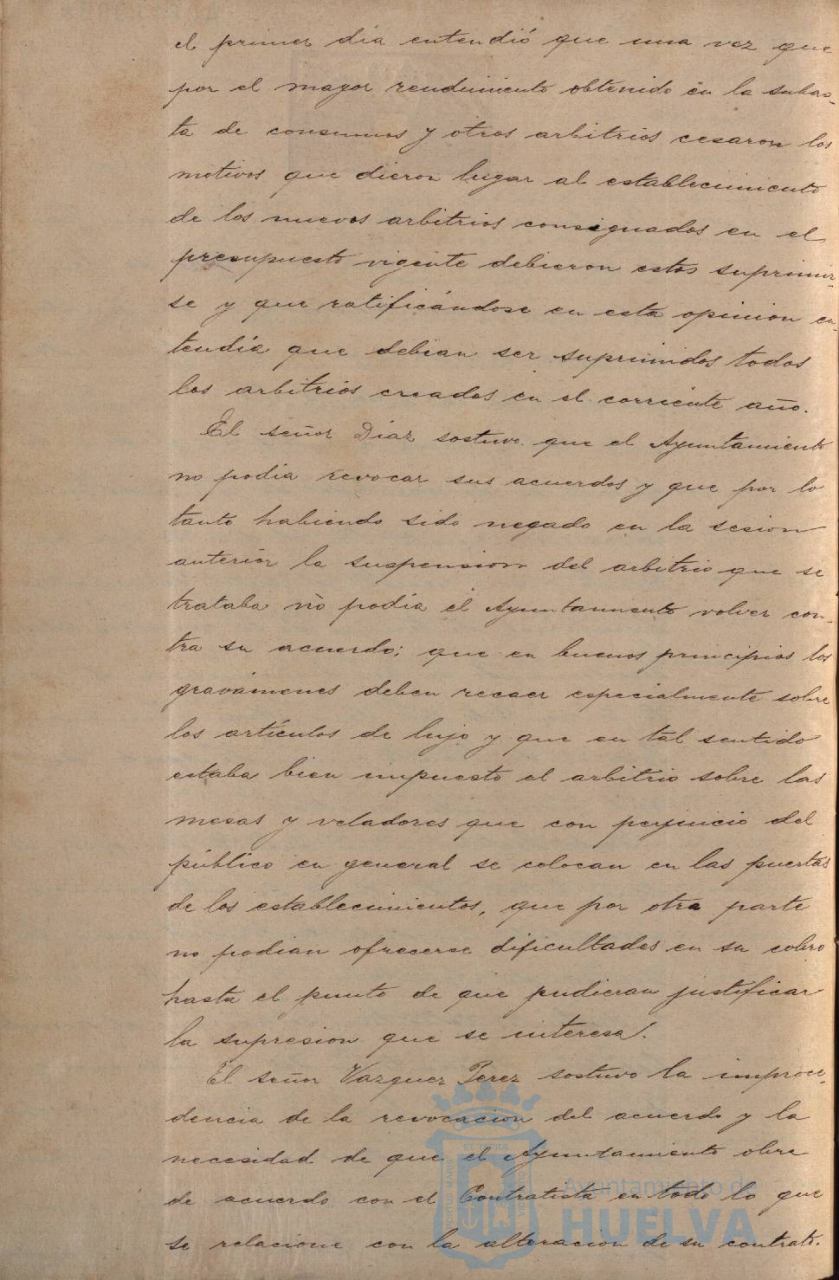 el primer dia entendió que una vez que
por el mayor rendimiento obtenido en la subas-
ta de consumos y otros arbitrios cesaron los
motivos que dieron lugar al establecimiento
de los nuevos arbitrios consignados en el
presupuesto vigente debieron estos suprimir-
se y que ratificándose en esta opinion en-
tendía que debian ser suprimidos todos
los arbitrios creados en el corriente año.
El señor Diaz sostuvo que el Ayuntamiento
no podia revocar sus acuerdos y que por lo
tanto habiendo sido negado en la sesion
anterior la suspension del arbitrio que se
trataba no podia el Ayuntamiento volver con-
tra su acuerdo; que en buenos principios los
gravámenes deben recaer especialmente sobre
los artículos de lujo y que en tal sentido
estaba bien impuesto el arbitrio sobre las
mesas y veladores que con perjuicio del
público en general se colocan en las puertas
de los establecimientos, que por otra parte
no podian ofrecerse dificultades en su cobro
hasta el punto de que pudieran justificar
la supresion que se interesa.
El señor Vazquez Perez sostuvo la improce-
dencia de la revocacion del acuerdo y la
necesidad de que el Ayuntamiento obre
de acuerdo con el Contratista en todo lo que
se relacione con la alteracion de su contrato.
Ayuntamiento de
HUELVA